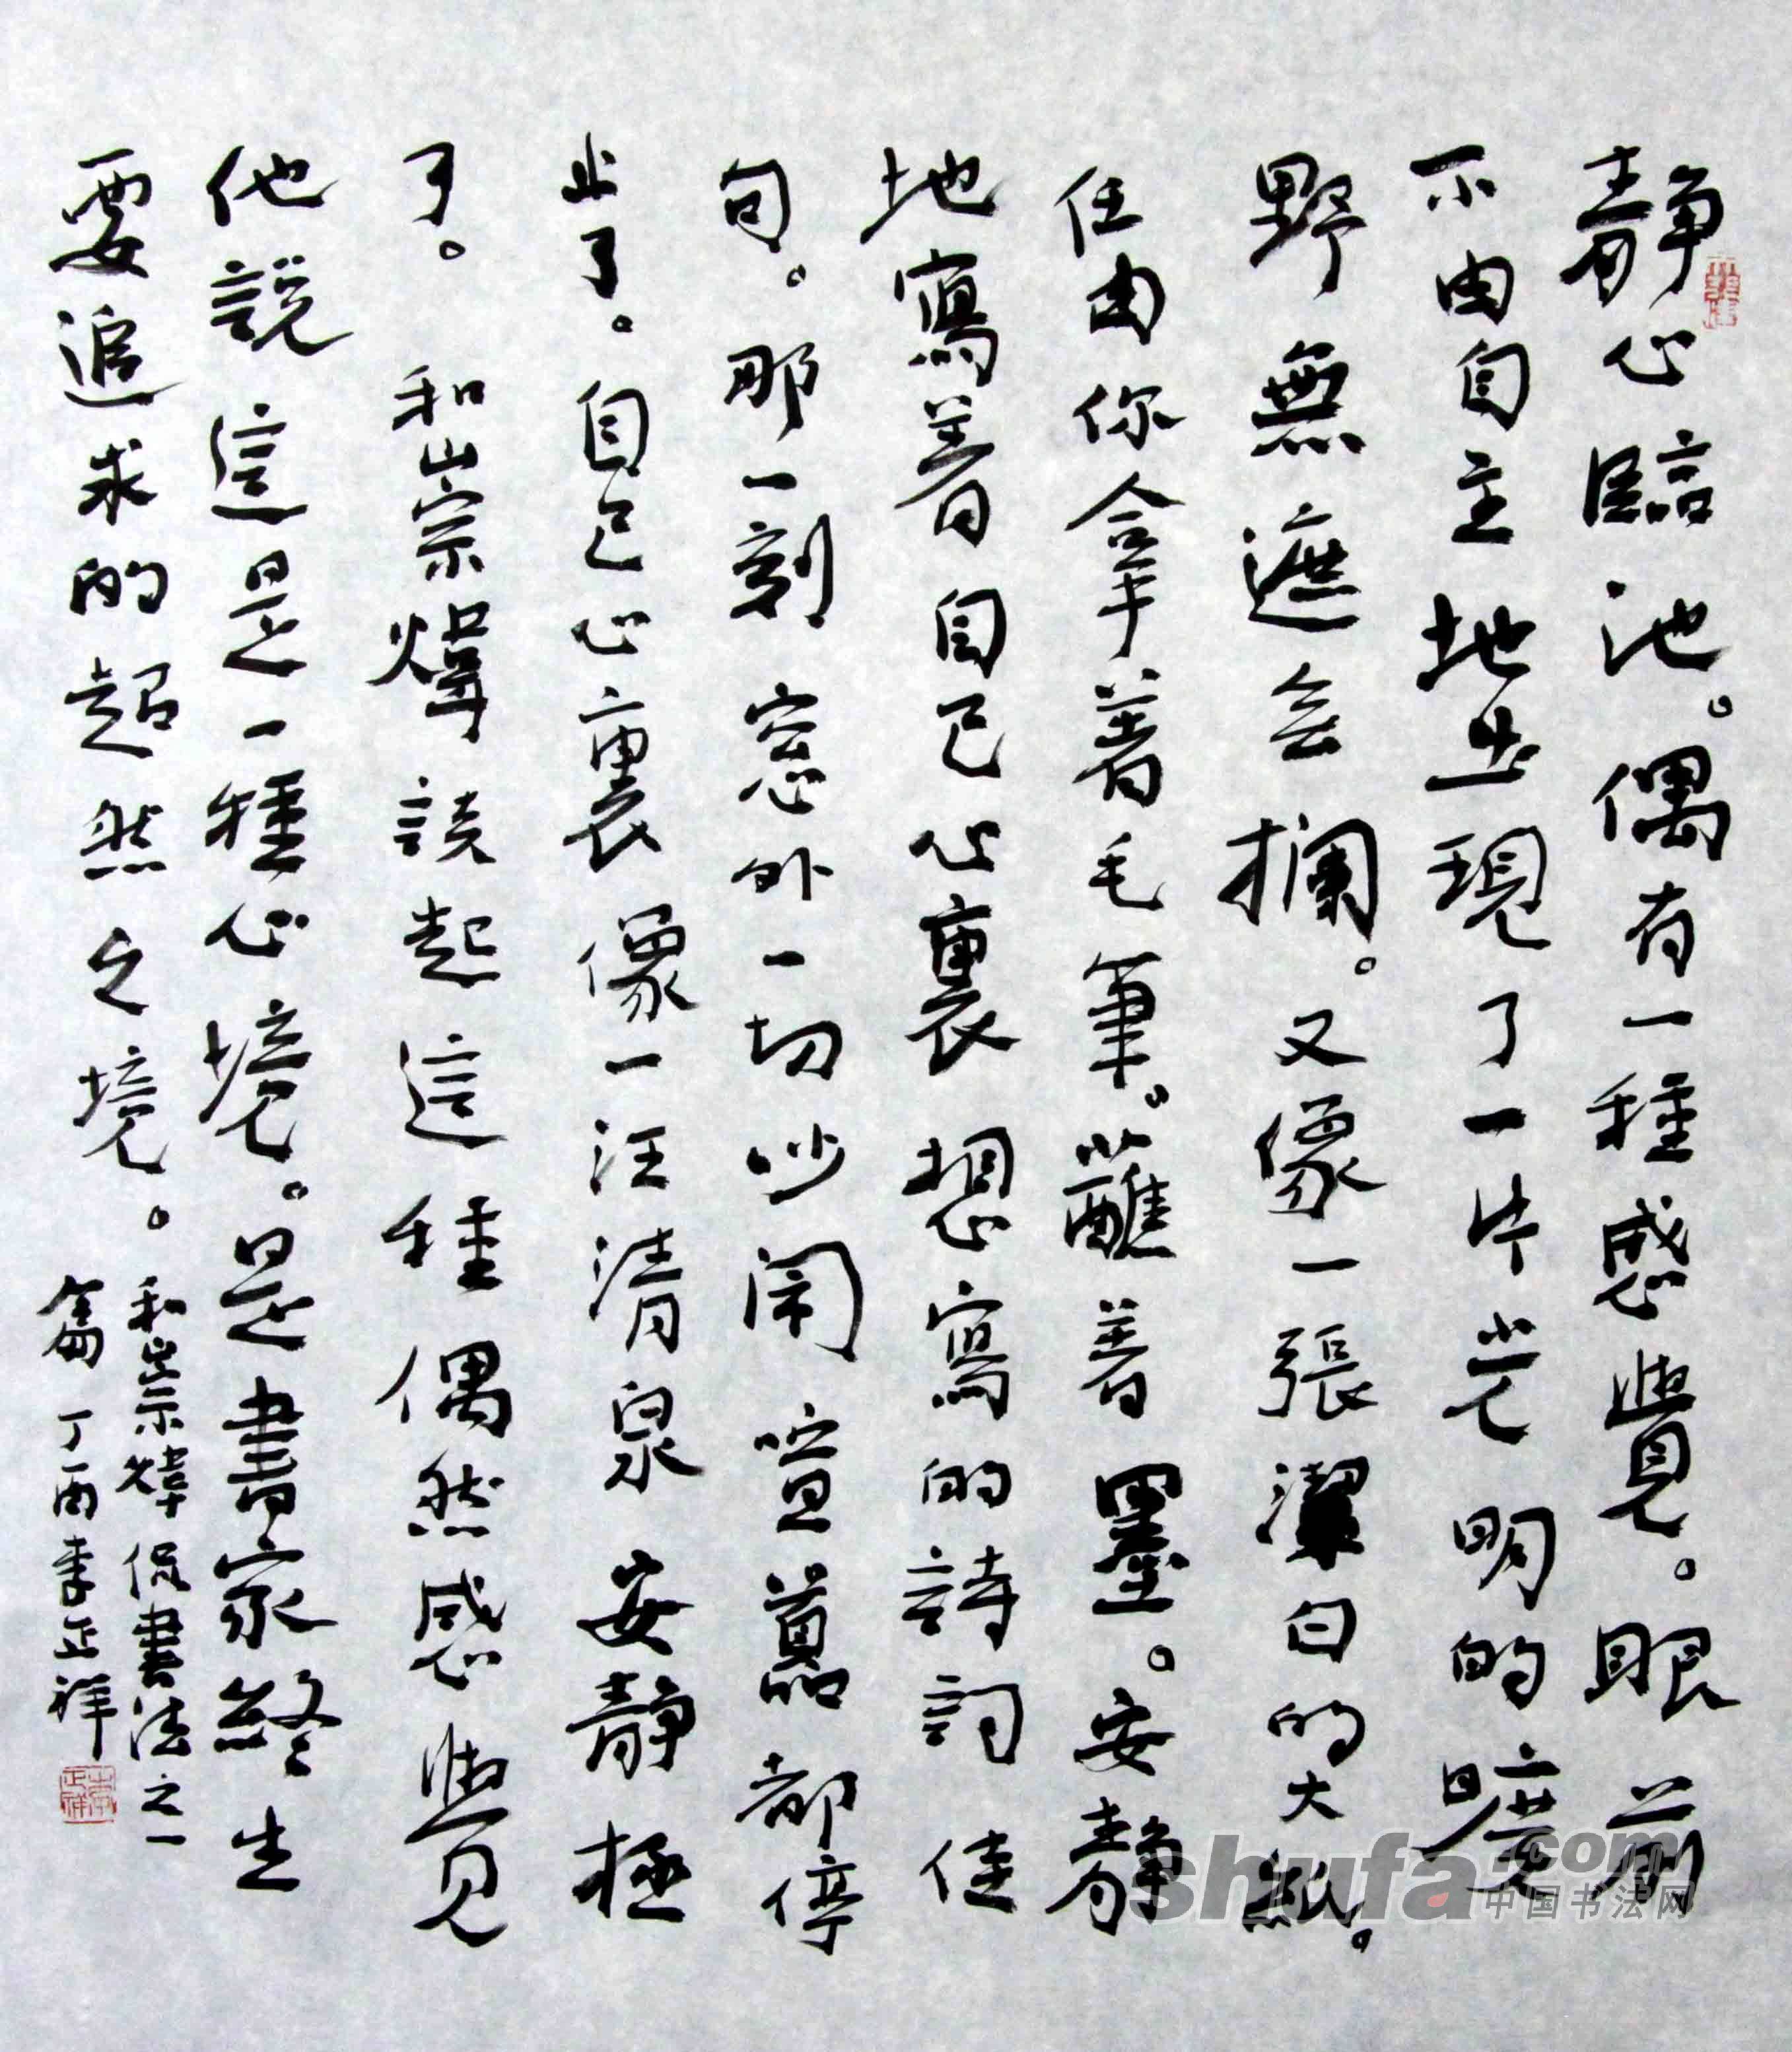 靜心臨池。偶有一種感覺。眼前
不由自主地出現了一片光明的曠
野無遮無攔。又像一張潔白的大紙。
任由你拿著毛筆。蘸著墨。安靜
地寫着自己心裏想寫的詩詞佳
句。那一刻窓外一切吵鬧喧囂都停
止了。自己心裏像一汪清泉安靜極
了。和崇煒談起這種偶然感覺
他說這是一種心境。是書家終生
要追求的超然之境。
和崇煒侃書法之一
丁酉李正祥
李正祥
shufa.com
中国书法网